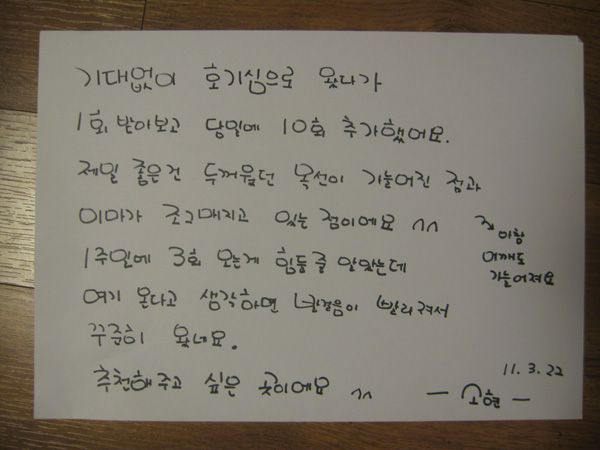 기대없이 호기심으로 왔다가
1회 받아보고 당일에 10회 추가했어요.
제일 좋은건 두꺼웠던 목선이 가늘어진 점과
이마가 조그매지고 있는 점이에요 ^^
아항
어깨도
가늘어져요
1주일에 3회 오는게 힘들줄 알았는데
여기 온다고 생각하면 발걸음이 빨라져서
꾸준히 왔네요.
추천해주고 싶은 곳이에요 ^^
11. 3. 22
- 소현 -